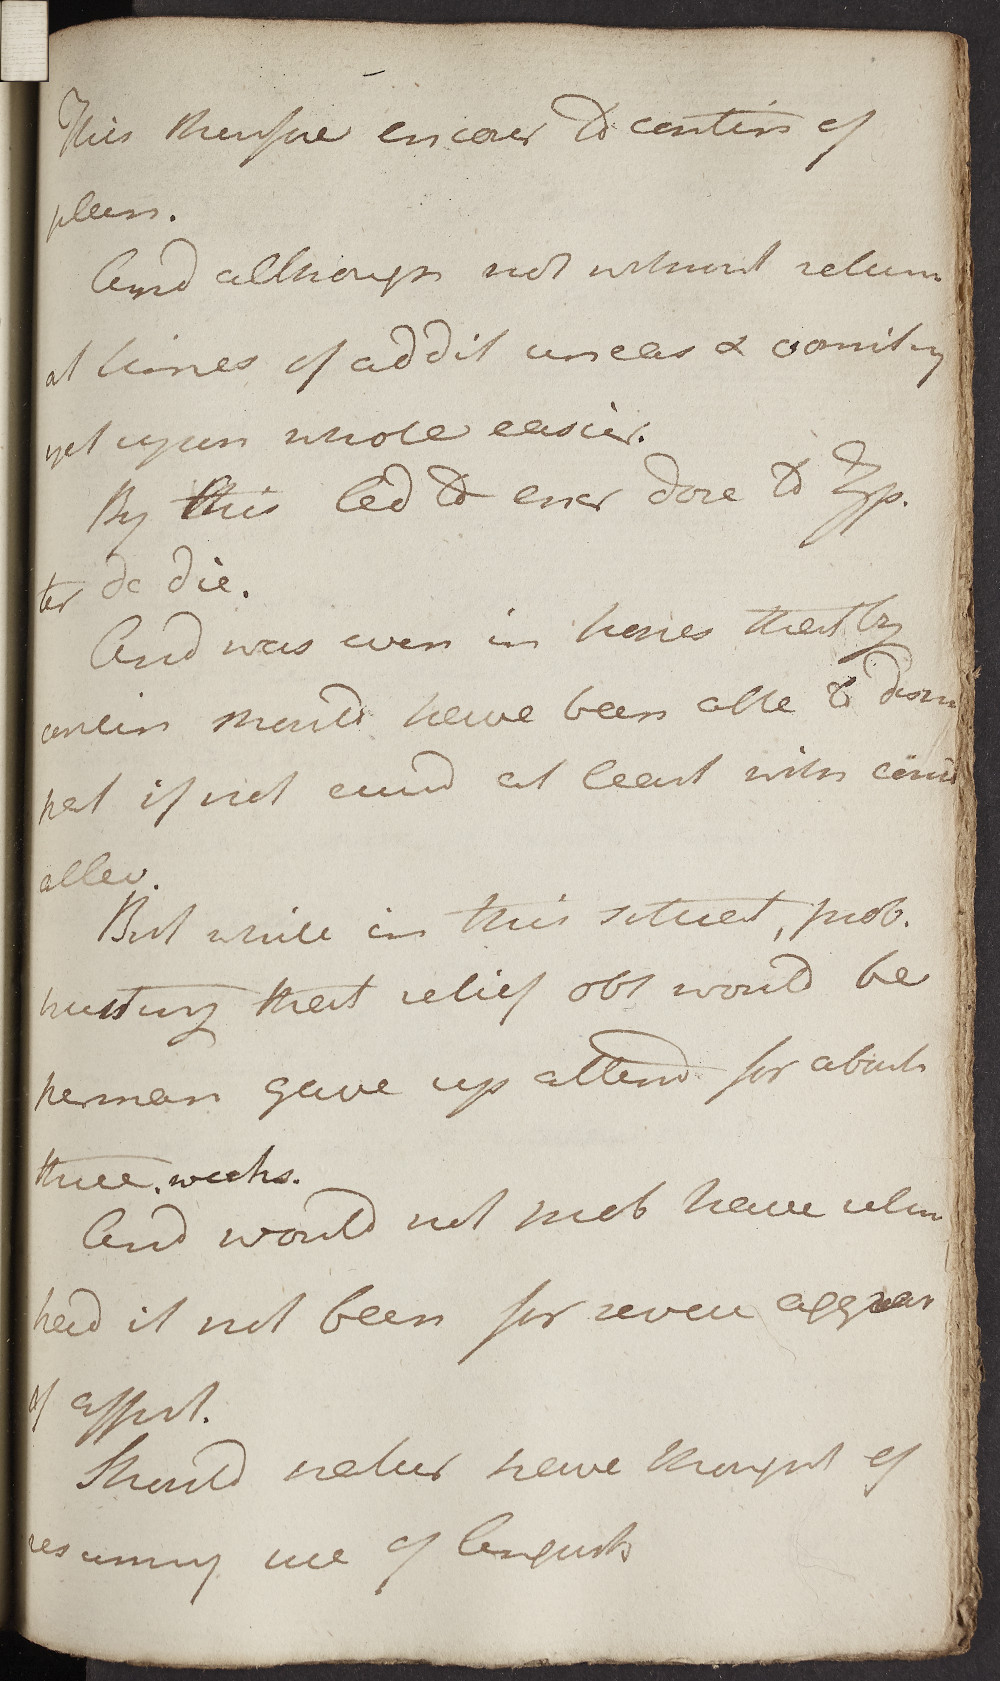 This therefore encour to contin of
plan.
And although not without return
at times of addit uneas & vomiting
yet upon whole easier.
By this led to encr dose to Zfs.
ter de die.
And was even in hopes that by
contin should have been able to dism
pat if not cured at least with consid
allev.
But while in this situat, prob.
trusting that relief obt would be
perman gave up attend for about
three weeks.
And would not prob have return
had it not been for severe aggrav
of affect.
Should natur have thought of
resuming use of Angust